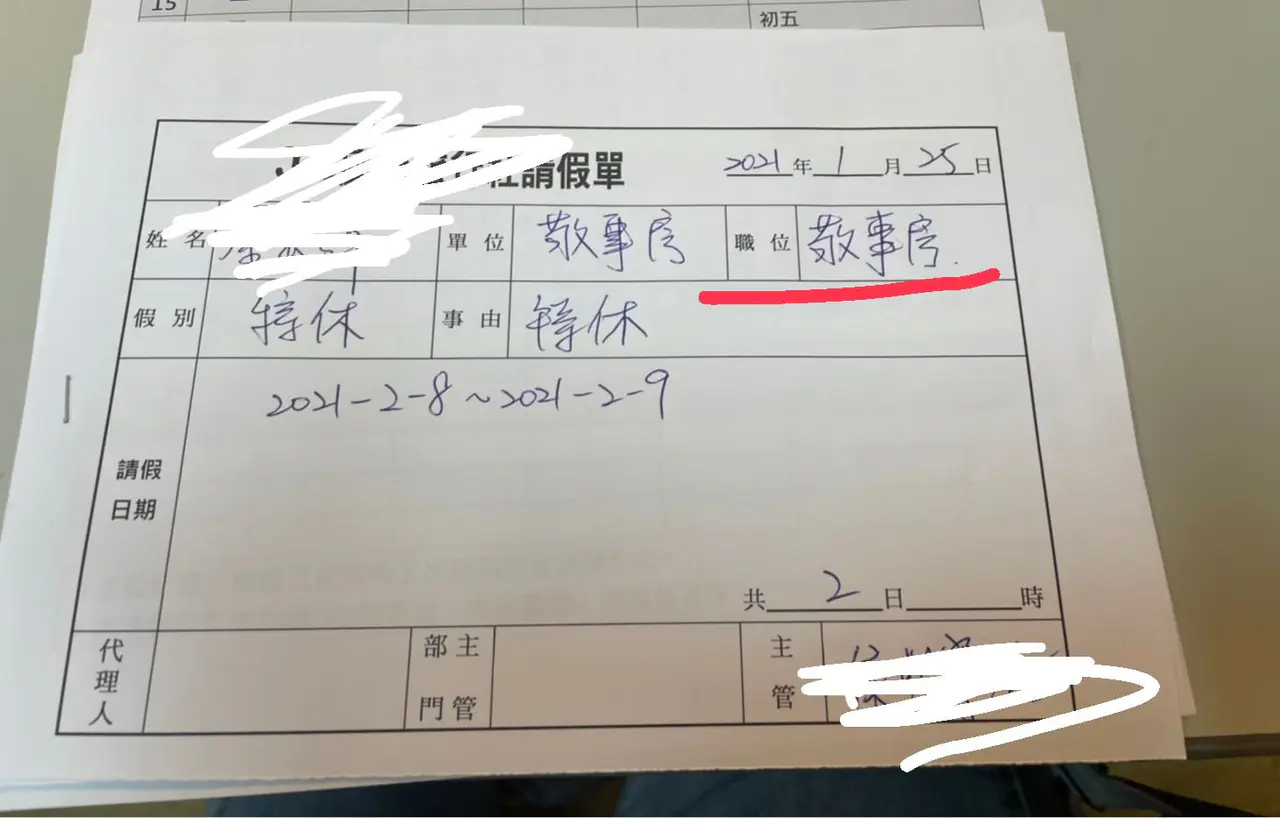 15
初五
請假單 2021年1月25日
姓名 單位 敬事房 職位 敬事房.
假別 特休 事由 特休
2021-2-8~2021-2-9
請假
日期
共2日 時
代理人 部門主管 主管